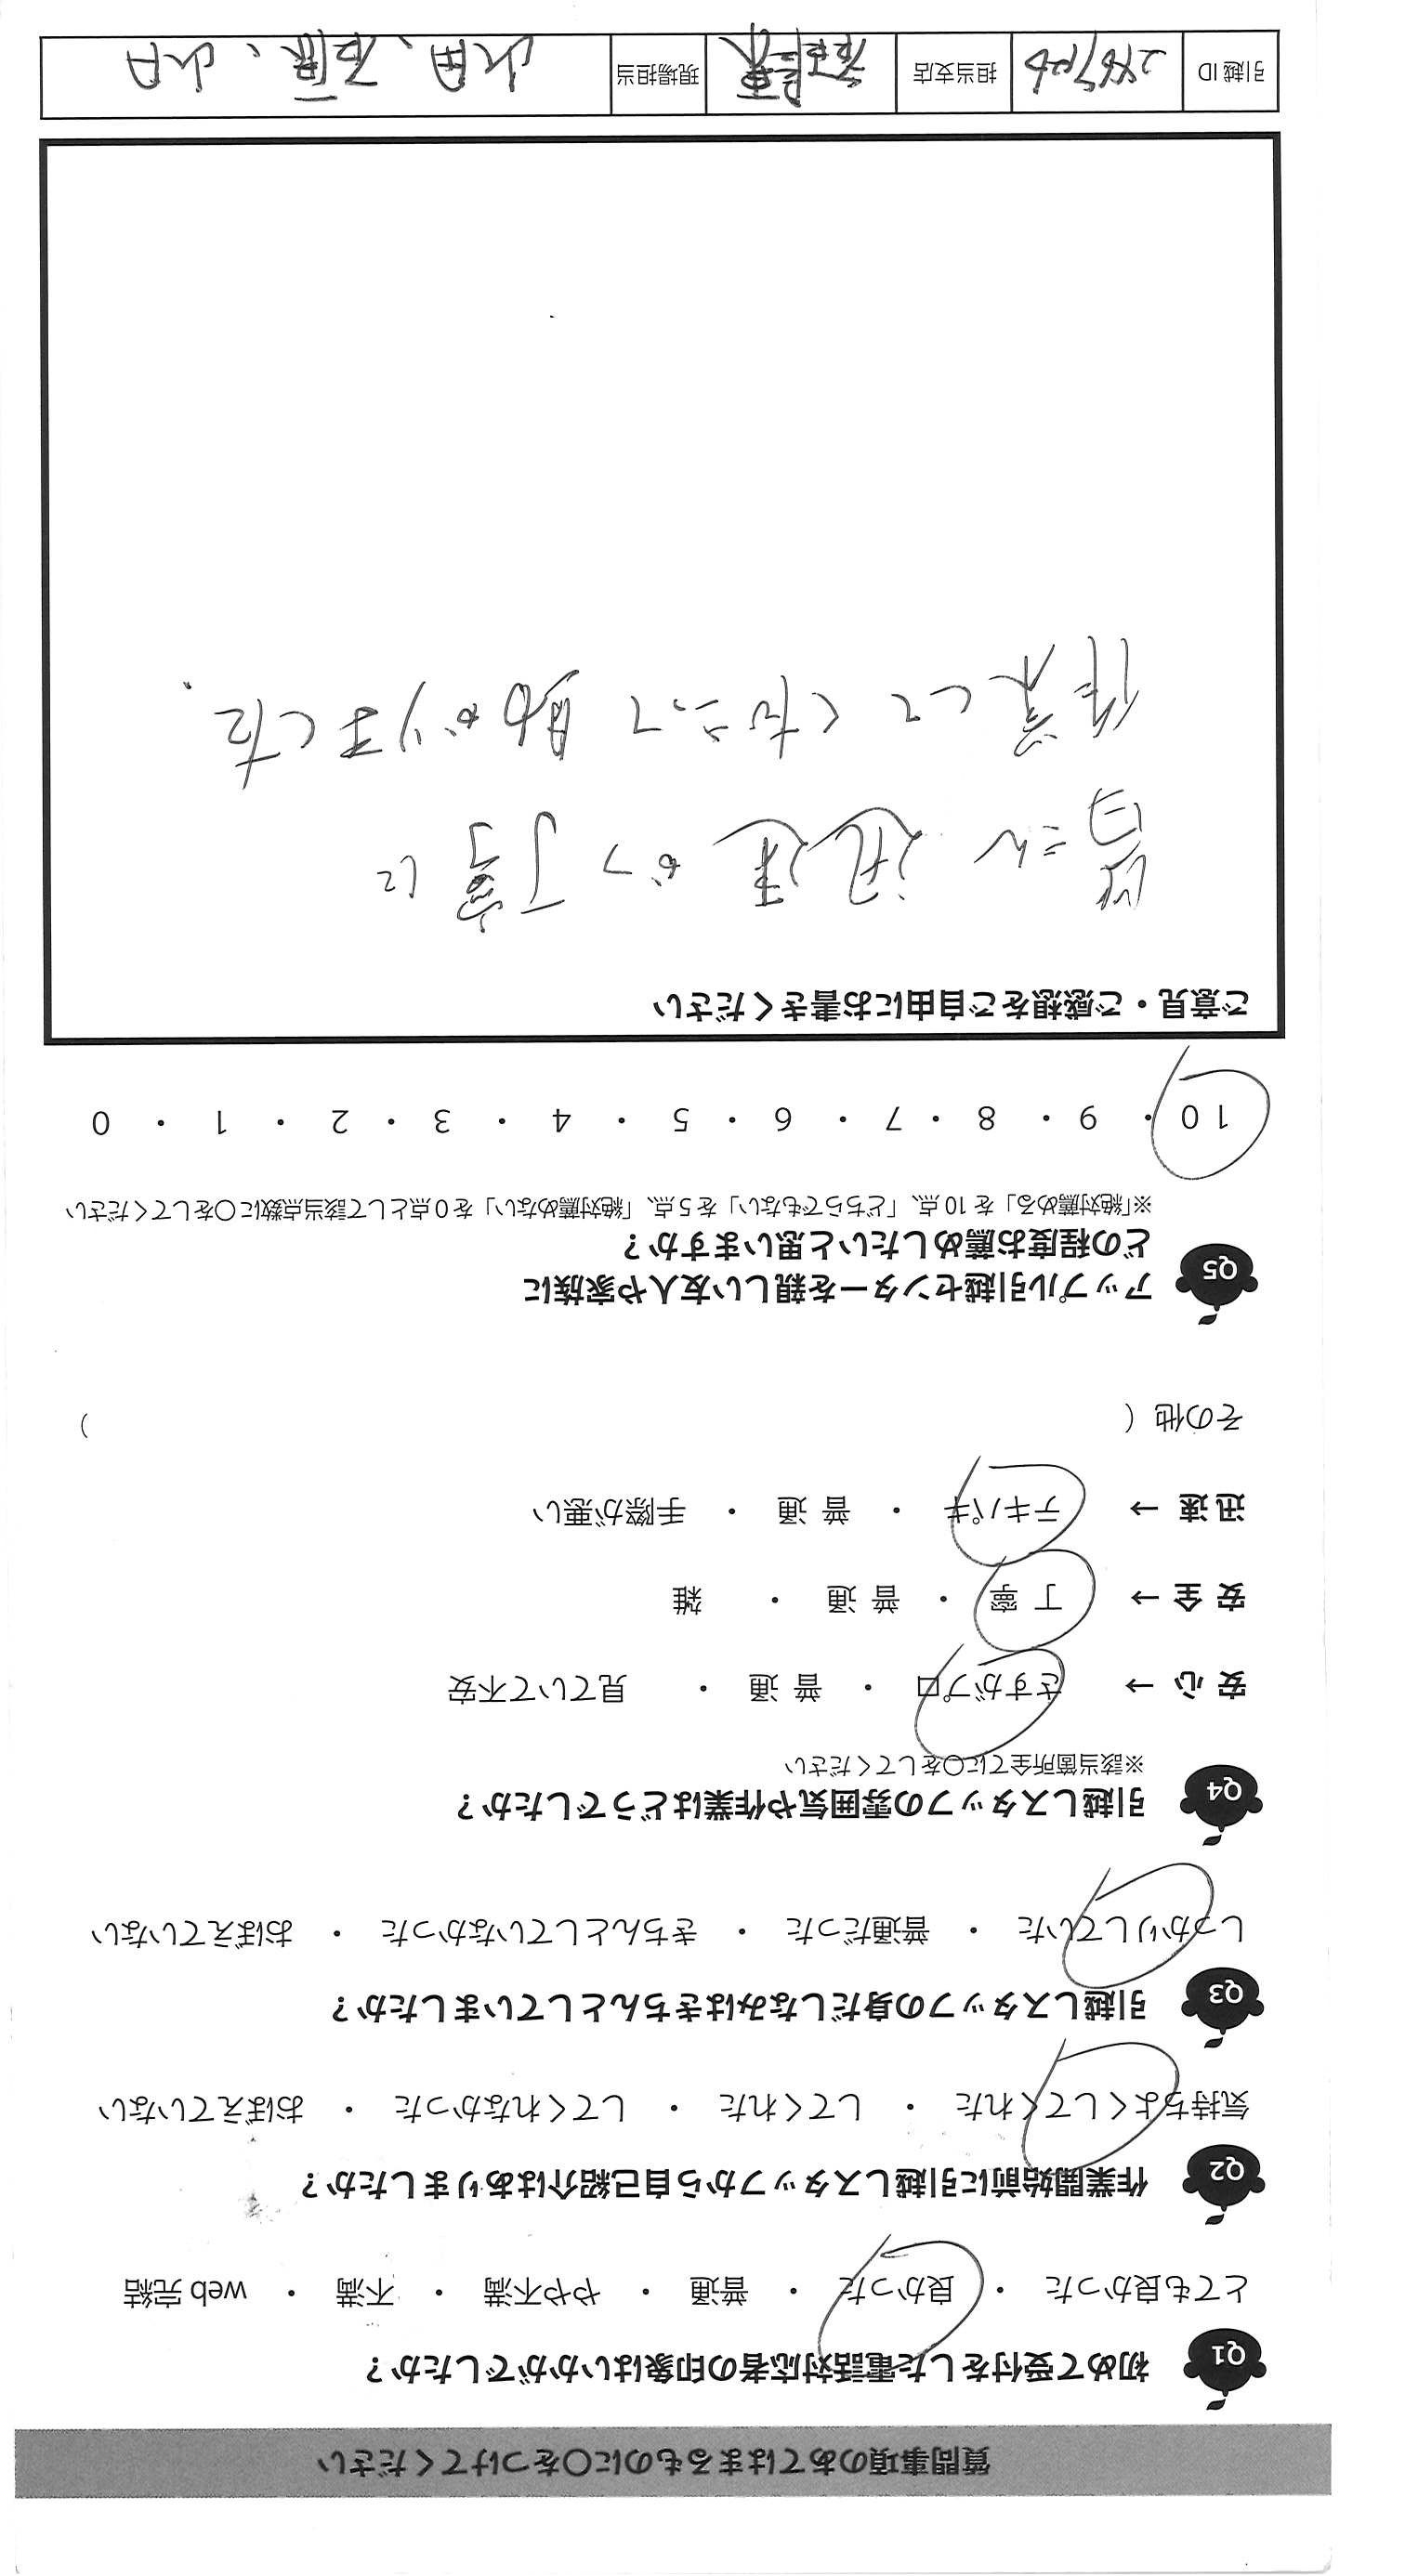 質問事項のあてはまるものに〇をつけてください
Q1 初めて受付をした電話対応者の印象はいかがでしたか？
とても良かった ・ 良かった ・ 普通 ・ やや不満 ・ 不満 ・ web 完結
Q2 作業開始前に引越しスタッフから自己紹介はありましたか？
気持ちよくしてくれた ・ してくれた ・ してくれなかった ・ おぼえていない
Q3 引越しスタッフの身だしなみはきちんとしていましたか？
しっかりしていた ・ 普通だった ・ きちんとしていなかった ・ おぼえていない
Q4 引越しスタッフの雰囲気や作業はどうでしたか？
※該当箇所全てに〇をしてください
安 心 → さすがプロ ・ 普 通 ・ 見ていて不安
安 全 → 丁 寧 ・ 普 通 ・ 雑
迅 速 → テキパキ ・ 普 通 ・ 手際が悪い
その他（ ）
Q5 アップル引越センターを親しい友人や家族に
どの程度お薦めしたいと思いますか？
※「絶対薦める」を 10 点、「どちらでもない」を 5 点、「絶対薦めない」を 0 点として該当点数に〇をしてください
10 ・ 9 ・ 8 ・ 7 ・ 6 ・ 5 ・ 4 ・ 3 ・ 2 ・ 1 ・ 0
ご意見・ご感想をご自由にお書きください
皆さん 迅速かつ丁寧に
作業して くださって 助かりました.
引越 ID 担当支店 現場担当